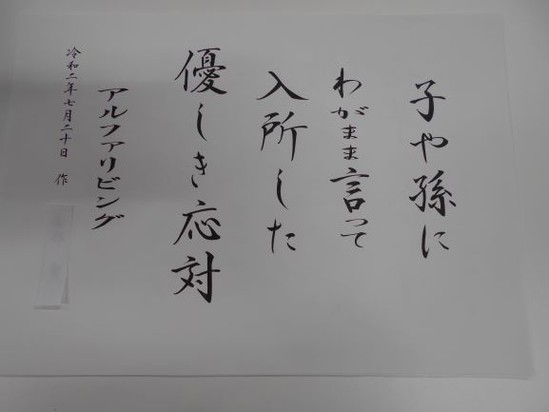 子や孫に
わがまま言って
入所した
優しき応対
アルファリビング
令和二年七月二十日 作